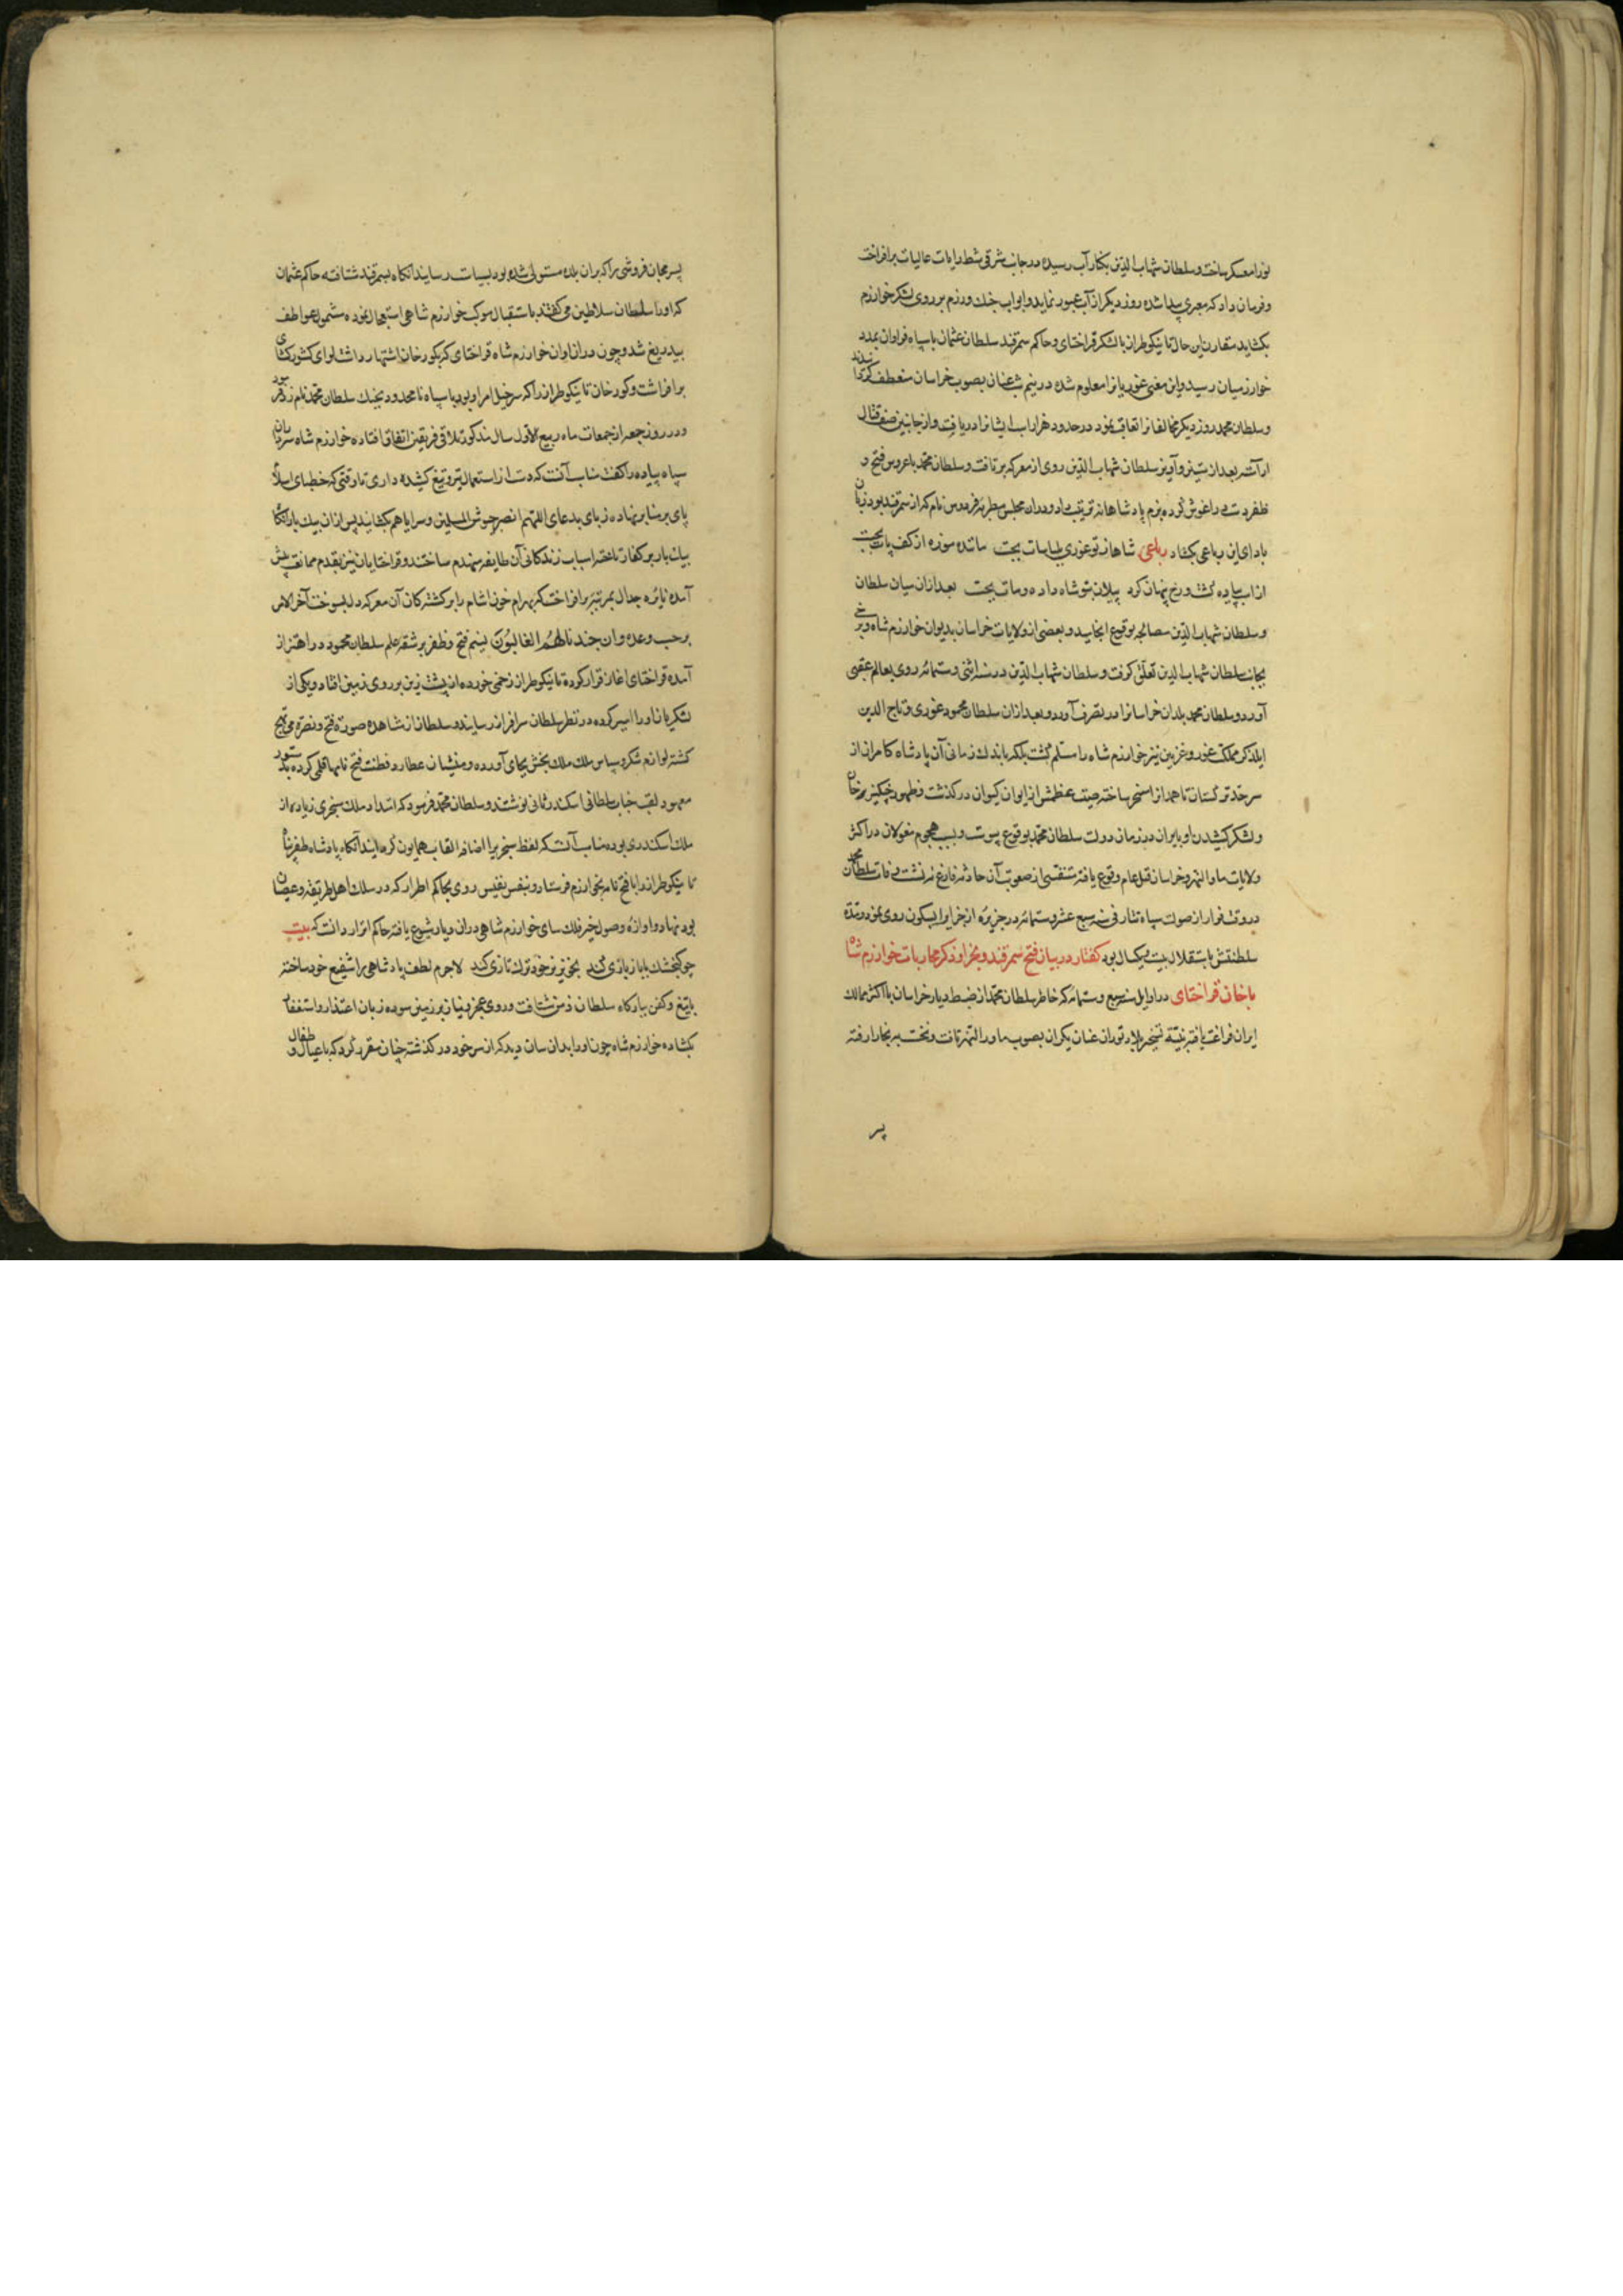 نوزرا معسکر ساخت و سلطان شهاب الدین بکنار آب رسیده در جانب شرقی شط رایات عالیات برافراخت
و فرمان داد که معبری پیدا شده روز دیگر از آب عبور نماید و ابواب جنک و رزم بر روی لشکر خوارزم
بکشاید مقارن این حال تاینکوطراز با لشکر قراختای و حاکم سمرقند سلطان عثمان با سپاه فراوان بمدد
خوارزمیان رسید و این معنی غوریانرا معلوم شده در نیم شب عنان بصوب خراسان منعطف کردانیدند
و سلطان محمد روز دیگر مخالفانرا تعاقب نمود در حدود هزاراسب ایشانرا دریافت و از جانبین صف قتال
آراسته بعد از ستیز و آویز سلطان شهاب الدین روی از معرکه برتافت و سلطان محمد با عروس فتح و
ظفر دست در اغوش کرده بزم پادشاهانه ترتیب داد و در ان مجلس مطربه فردوس نام که از سمرقند بود زبان
بادای این رباعی بکشاد رباعی شاها ز تو غوری بلباسات بجست ماننده موزه از کف پات بجست
از اسب پیاده کشت و رخ پنهان کرد پیلان بتو شاه داد و مات بجست بعد از ان میان سلطان
و سلطان شهاب الدین مصالحه بوقوع انجامید و بعضی از ولایات خراسان بدیوان خوارزم شاه و برخی
بجانب سلطان شهاب الدین تعلق کرفت و سلطان شهاب الدین در سنه اثنی و ستمائه روی بعالم عقبی
آورد و سلطان محمد بلدان خراسانرا در تصرف آورد و بعد از ان سلطان محمود غوری و تاج الدین
ایلدکز مملکت غور و غزنین نیز خوارزم شاه را مسلم کشت بلکه باندک زمانی آن پادشاه کامران از
سرحد ترکستان تا همدانرا مسخر ساخته صیت عظمتش از ایوان کیوان در کذشت و ظهور چنکیز خان
و لشکر کشیدن او بایران در زمان دولت سلطان محمد بوقوع پیوست و بسبب هجوم مغولان در اکثر
ولایات ماوراالنهر و خراسان قتل عام وقوع یافته متنفسی از صعوبت آن حادثه فارغ ننشست وفات سلطان محمد
در وقت فرار از صولت سپاه تتار فی سنه سبع عشر و ستمائه در جزیره از جزایر ابسکون روی نمود و مدة
سلطنتش باستقلال بیست و یکسال بود کفتار در بیان فتح سمرقند و بخرا و ذکر محاربات خوارزم شاه
با خان قراختای در اوایل سنه سبع و ستمائه که خاطر سلطان محمد از ضبط دیار خراسان با اکثر ممالک
ایران فراغت یافت بنیة تسخیر بلاد توران عنان یکران بصوب ماوراالنهر تافت و نخست ببخارا رفته
پسر
پسر مجان فروشی را که بران بلده مستولی شده بود بسیاست رسانید انکاه بسمرقند شتافته حاکم عثمان
که او را سلطان سلاطین می کفتند باستقبال موکب خوارزم شاهی استعجال نموده مشمول عواطف
بیدریغ شد و چون دران اوان خوارزم شاه قراختای که بکورخان اشتهار داشت لوای کشورکشای
برافراشت و کورخان تاینکوطراز را که سرخیل امراء بود با سپاه نامحدود بجنک سلطان محمد نامزد فرمود
و در روز جمعه از جمعات ماه ربیع الاول سال مذکور تلاقی فریقین اتفاق افتاده خوارزم شاه سرداران
سپاه پیاده را کفت مناسب آنست که دست از استعمال تیر و تیغ کشیده داری تا وقتی که خطبای اسلام
پای بر منابر نهاده زبان بدعای اللهم انصر جیوش المسلمین و سرایاهم بکشایند پس ازان بیک بار انکاه
بیکبار بر کفار تاخته اسباب زندکانی آن طایفه منهدم ساختند و قراختایان نیز بقدم ممانعت پیش
آمده نایره جدال بمرتبه برافراخت که بهرام خون اشام را بر کشتکان آن معرکه دل بسوخت آخرالامر
برحسب وعده وان جندنا لهم الغالبون نسیم فتح و ظفر بر شقه علم سلطان محمود در اهتزاز
آمده قراختای اغاز فرار کرده تاینکوطراز زخمی خورده از پشت زین بر روی زمین افتاد و یکی از
لشکریان او را اسیر کرده در نظر سلطان سرافراز رسانید و سلطان از مشاهده صورة فتح و نصرة مبتهج
کشته لوازم شکر و سپاس ملک ملک بخش بجای آورده و منشیان عطارد فطنت فتح نامها قلمی کرده بدستور
معهود لقب جناب سلطانی اسکندر ثانی نوشتند و سلطان محمد فرمود که امتداد ملک سنجری زیاده از
ملک اسکندری بوده مناسب آنست که لفظ سنجر را اضافه القاب همایون کرده ایند آنکاه پادشاه ظفرپناه
تاینکوطراز را با فتح نامه بخوارزم فرستاد و بنفس نفیس روی بحاکم اطرار که در سلک اهل طریقه و عصیان
بود نهاد و اوازه وصول خیر فلک سای خوارزم شاهی دران دیار شیوع یافته حاکم اترار دانست که بیت
چو کنجشک با باز بازی کند بخونریز خود ترک تازی کند لاجرم لطف پادشاهی را شفیع خود ساخته
با تیغ و کفن ببارکاه سلطان زمن شتافت و روی عجز و نیاز بر زمین سوده زبان اعتذار و استغفار
بکشاده خوارزم شاه چون او را بدان سان دید و که از سر خود در کذشته چنان مقرر کرد که با عیال و اطفال